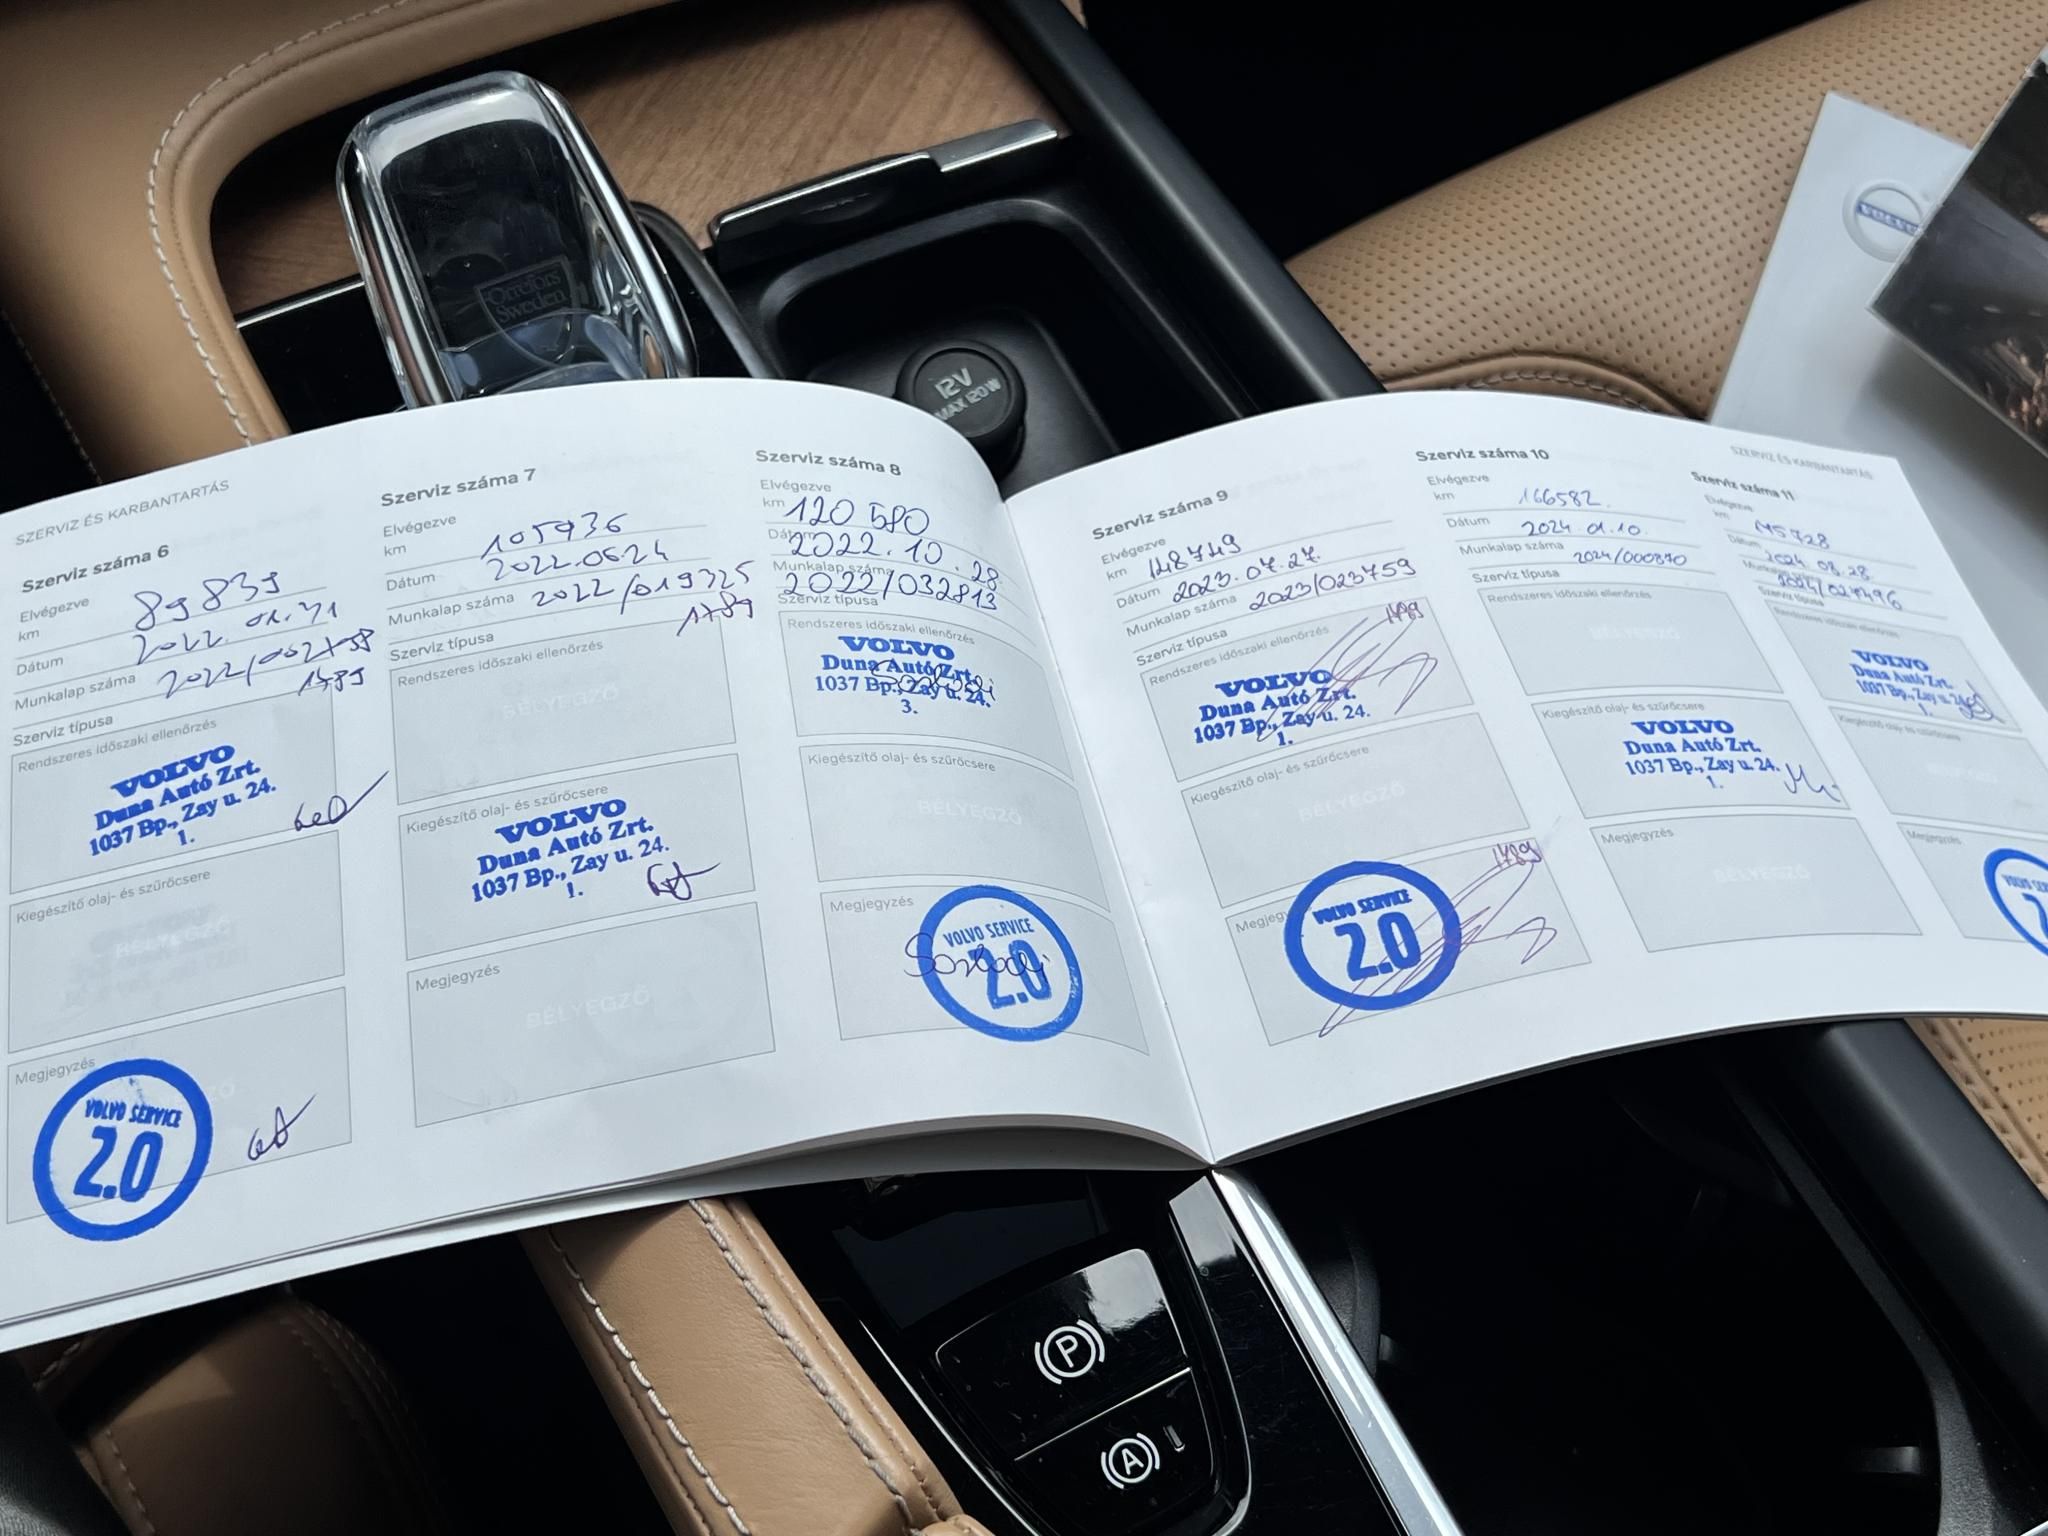 Orrefors
Sweden
12V
MAX 120W
VOLVO
SZERVIZ ÉS KARBANTARTÁS
Szerviz száma 6
Elvégezve
km 89839
Dátum 2022.01.31
Munkalap száma
1789
Szerviz típusa
Rendszeres időszaki ellenőrzés
VOLVO
Duna Autó Zrt.
1037 Bp., Zay u. 24.
1.
Kiegészítő olaj- és szűrőcsere
BÉLYEGZŐ
Megjegyzés
VOLVO SERVICE
2.0
Szerviz száma 7
Elvégezve
km 105936
Dátum 2022.06.24
Munkalap száma 2022/019325
1789
Szerviz típusa
Rendszeres időszaki ellenőrzés
BÉLYEGZŐ
Kiegészítő olaj- és szűrőcsere
VOLVO
Duna Autó Zrt.
1037 Bp., Zay u. 24.
1.
Megjegyzés
BÉLYEGZŐ
Szerviz száma 8
Elvégezve
km 120 580
Dátum 2022.10.28
Munkalap száma 2022/032813
Szerviz típusa
Rendszeres időszaki ellenőrzés
VOLVO
Duna Autó Zrt.
1037 Bp., Zay u. 24.
3.
Kiegészítő olaj- és szűrőcsere
BÉLYEGZŐ
Megjegyzés
VOLVO SERVICE
2.0
Szerviz száma 9
Elvégezve
km 148749
Dátum 2023.07.27.
Munkalap száma 2023/023759
Szerviz típusa
1789
Rendszeres időszaki ellenőrzés
VOLVO
Duna Autó Zrt.
1037 Bp., Zay u. 24.
1.
Kiegészítő olaj- és szűrőcsere
BÉLYEGZŐ
1789
Megjegyzés
VOLVO SERVICE
2.0
SZERVIZ ÉS KARBANTARTÁS
Szerviz száma 10
Elvégezve
km 166582
Dátum 2024.01.10.
Munkalap száma 2024/000870
Szerviz típusa
Rendszeres időszaki ellenőrzés
BÉLYEGZŐ
Kiegészítő olaj- és szűrőcsere
VOLVO
Duna Autó Zrt.
1037 Bp., Zay u. 24.
1.
Megjegyzés
BÉLYEGZŐ
Szerviz száma 11
Elvégezve
km
Dátum 2024.08.28.
Munkalap száma
Szerviz típusa
Rendszeres időszaki ellenőrzés
VOLVO
Duna Autó Zrt.
1037 Bp., Zay u. 24.
1.
Kiegészítő olaj- és szűrőcsere
BÉLYEGZŐ
Megjegyzés
VOLVO
P
A